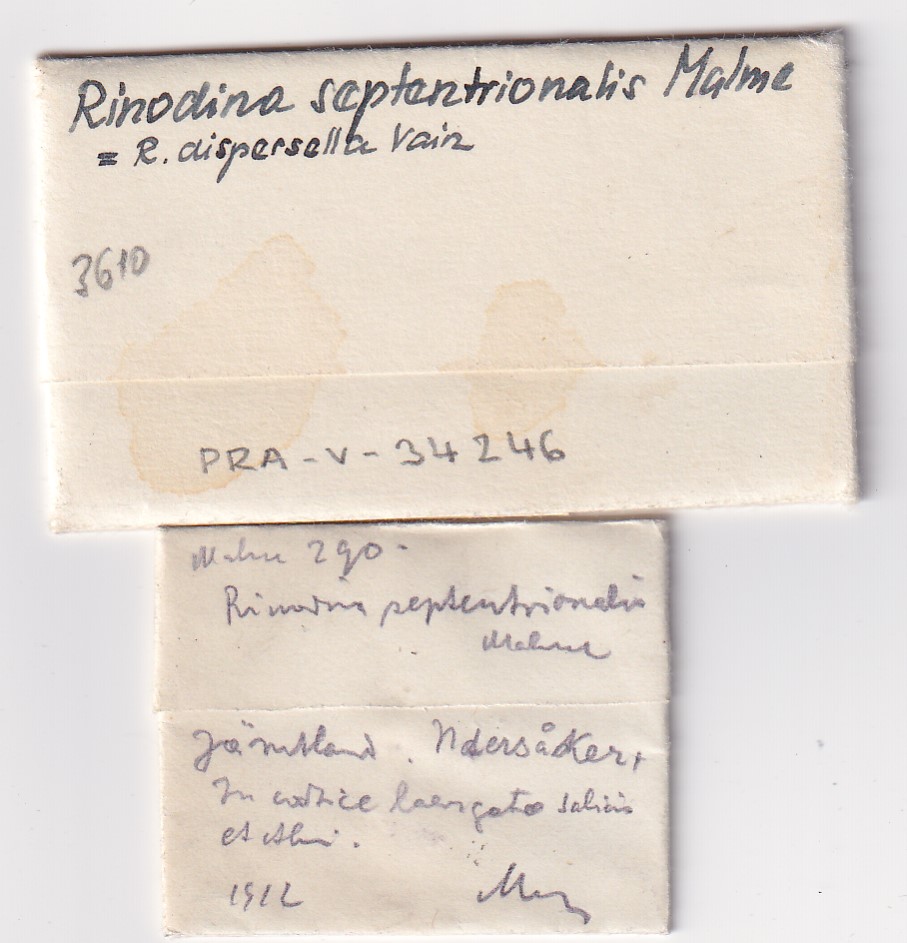 Rinodina septentrionalis Malme
= R. dispersella Vain
3610
PRA-V-34246
Malme 290.
Rinodina septentrionalis
Malme
Jämtland. Undersåker,
In cortice laevigato salicis
et Alni.
1912